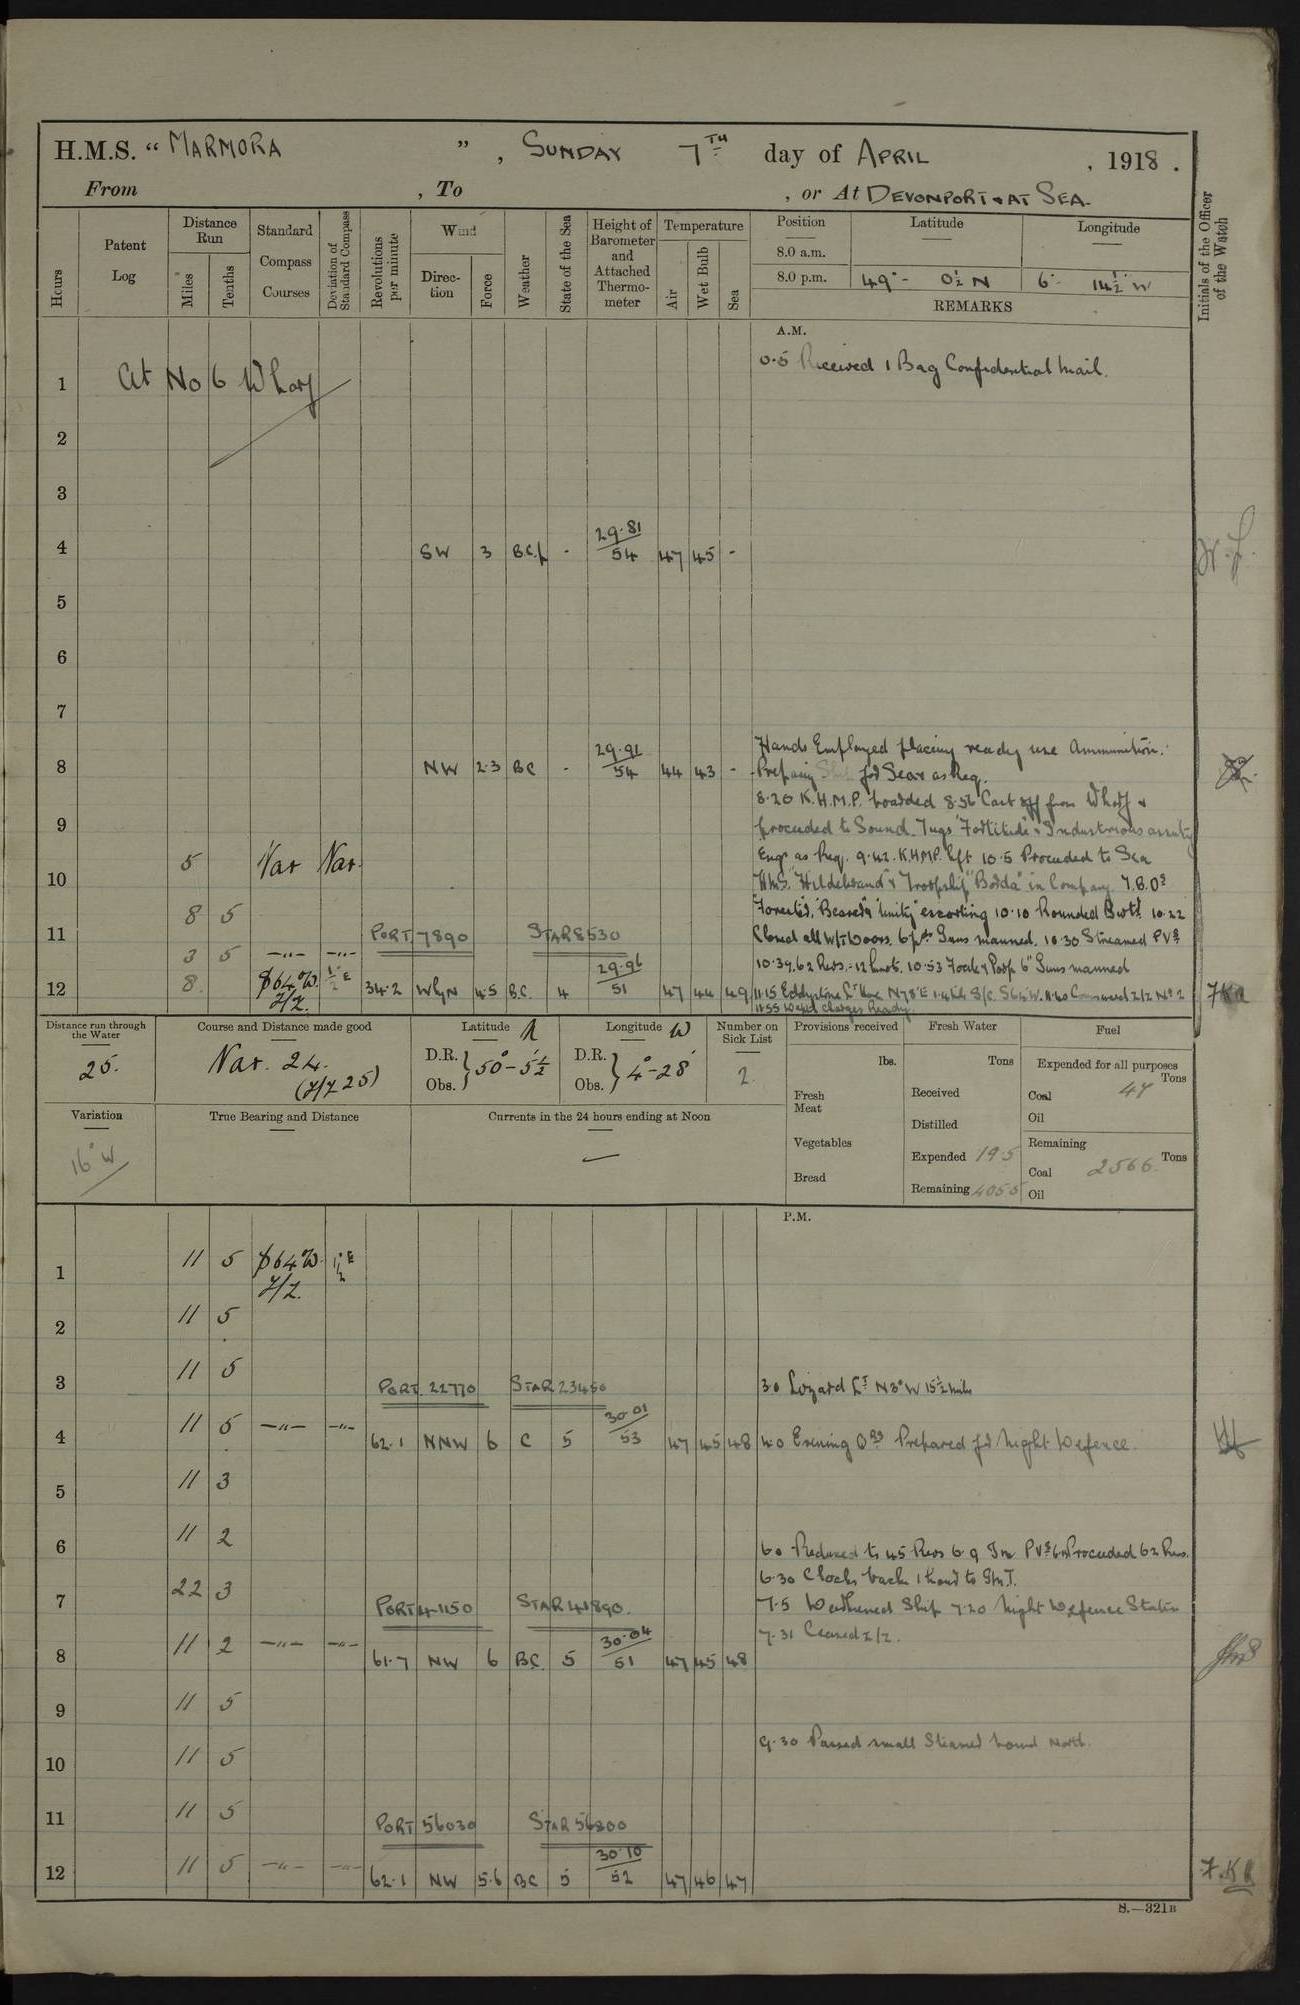 H.M.S. " MARMORA " , SUNDAY 7TH day of APRIL , 1918 .
From , To , or At DEVONPORT & AT SEA.
Hours
Patent Log
Distance Run
Miles
Tenths
Standard Compass Courses
Deviation of Standard Compass
Revolutions per minute
Wind
Direction
Force
Weather
State of the Sea
Height of Barometer and Attached Thermometer
Temperature
Air
Wet Bulb
Sea
Position
Latitude
Longitude
8.0 a.m.
8.0 p.m. 49° - 0½ N 6° 14½' W
REMARKS
Initials of the Officer of the Watch
A.M.
0.5 Received 1 Bag Confidential Mail.
1 At No 6 Wharf
2
3
4 SW 3 BC.p - 29.81/54 47 45 -
5
6
7
Hands Employed placing ready use Ammunition.
8 NW 2.3 BC - 29.91/54 44 43 -
Prepairing Ship for Sea & as Req.
8.20 K.H.M.P. boarded 8.56 Cast off from Wharf &
9
proceeded to Sound. Tugs "Fortitude" & Industrious assisting
Engs as Req. 9.42. K.H.M.P. left 10.5 Proceeded to Sea
10 5 Var Var.
H.M.S. "Hildebrand" & Troopship "Borda" in Company. T.B.Ds
"Forester", "Beaver" & "Unity" escorting 10.10 Rounded 10.22
11 8 5 PORT 7890 STAR 8530
Closed all W/T Doors. 6pdr Guns manned. 10.30 Streamed PVs
3 5 -"- -"-
10.39. 62 Revs. = 12 Knots. 10.53 Focle & Poop 6" Guns manned
12 8. S64W. Z/Z. 1½°E 34.2 WbyN 4.5 B.C. 4 29.96/51 47 44 49
11.15 Eddystone Lt Hse N78°E 1.4 mile S/C. S64°W. 11.40 Commenced Z/Z No 2
11.55 Depth charges Ready.
Distance run through the Water
25.
Course and Distance made good
Var. 24.
(Z/Z 25)
Latitude N
D.R. Obs. } 50° - 5½'
Longitude W
D.R. Obs. } 4° - 28'
Number on Sick List
2.
Provisions received
lbs.
Fresh Meat
Vegetables
Bread
Fresh Water
Tons
Received
Distilled
Expended 195
Remaining 4055
Fuel
Expended for all purposes
Tons
Coal 47
Oil
Remaining
Tons
Coal 2566
Oil
Variation
16° W
True Bearing and Distance
Currents in the 24 hours ending at Noon
P.M.
1 11 5 S64W. Z/Z. 1½°E
2 11 5
3 11 5 PORT 22770 STAR 23450
3.0 Lizard Lt N3°W 15½ miles
4 11 5 -"- -"- 62.1 NNW 6 C 5 30.01/53 47 45 48
4.0 Evening Qrs Prepared for Night Defence.
5 11 3
6 11 2
6.0 Reduced to 45 Revs 6.9 In PVs Proceeded 62 Revs.
6.30 Clocks back 1 hour to G.M.T.
7 22 3 PORT 41150 STAR 41890.
7.5 Darkened Ship 7.20 Night Defence Stations
7.31 Ceased Z/Z.
8 11 2 -"- -"- 61.7 NW 6 BC. 5 30.04/51 47 45 48
9 11 5
9.30 Passed small Steamer bound North.
10 11 5
11 11 5 PORT 56030 STAR 56800
12 11 5 -"- -"- 62.1 NW 5.6 BC 5 30.10/52 47 46 47
S.—321B